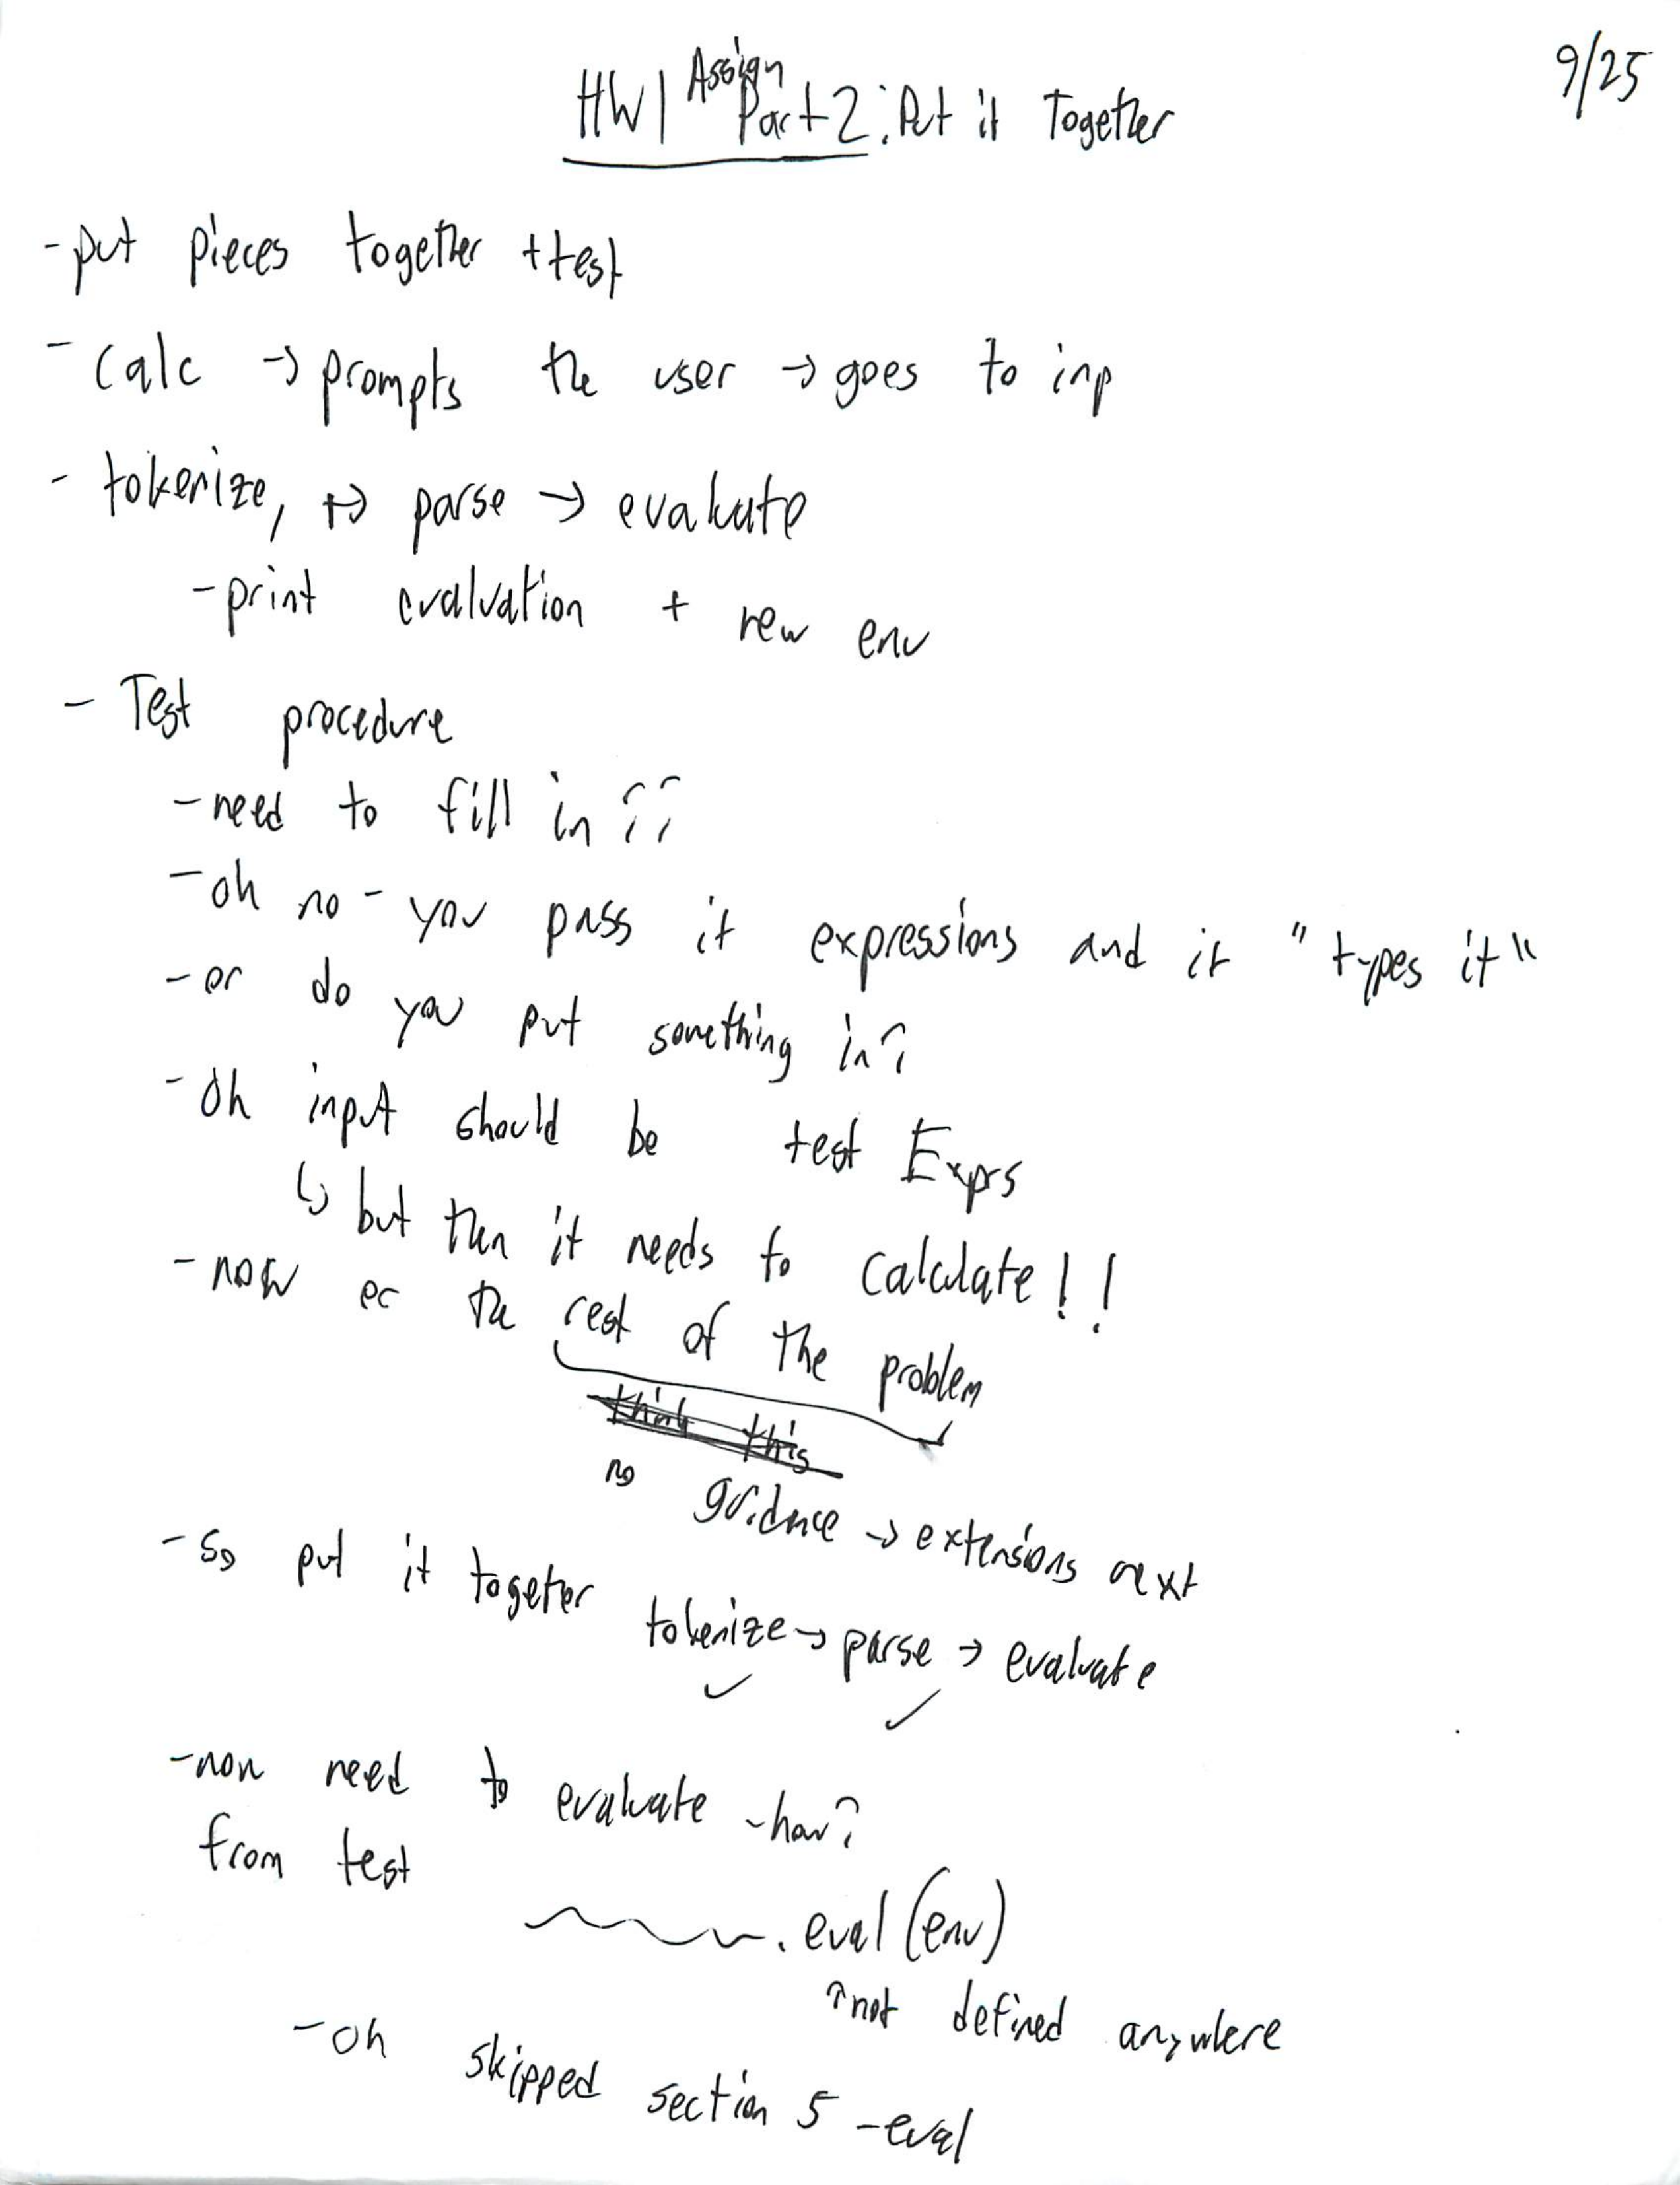 9/25
HW1 Assign Part 2: Put it Together
- put pieces together + test
- calc → prompts the user → goes to inp
- tokenize, → parse → evaluate
- print evaluation + new env
- Test procedure
- need to fill in ??
- oh no - you pass it expressions and it "types it"
- or do you put something in?
- Oh input should be test Exprs
↳ but then it needs to calculate!!
- now the rest of the problem
think this
no guidance → extensions next
- So put it together tokenize → parse → evaluate
✓ ✓
- now need to evaluate - how?
from test
. eval (env)
↑ not defined anywhere
- Oh skipped section 5 - eval